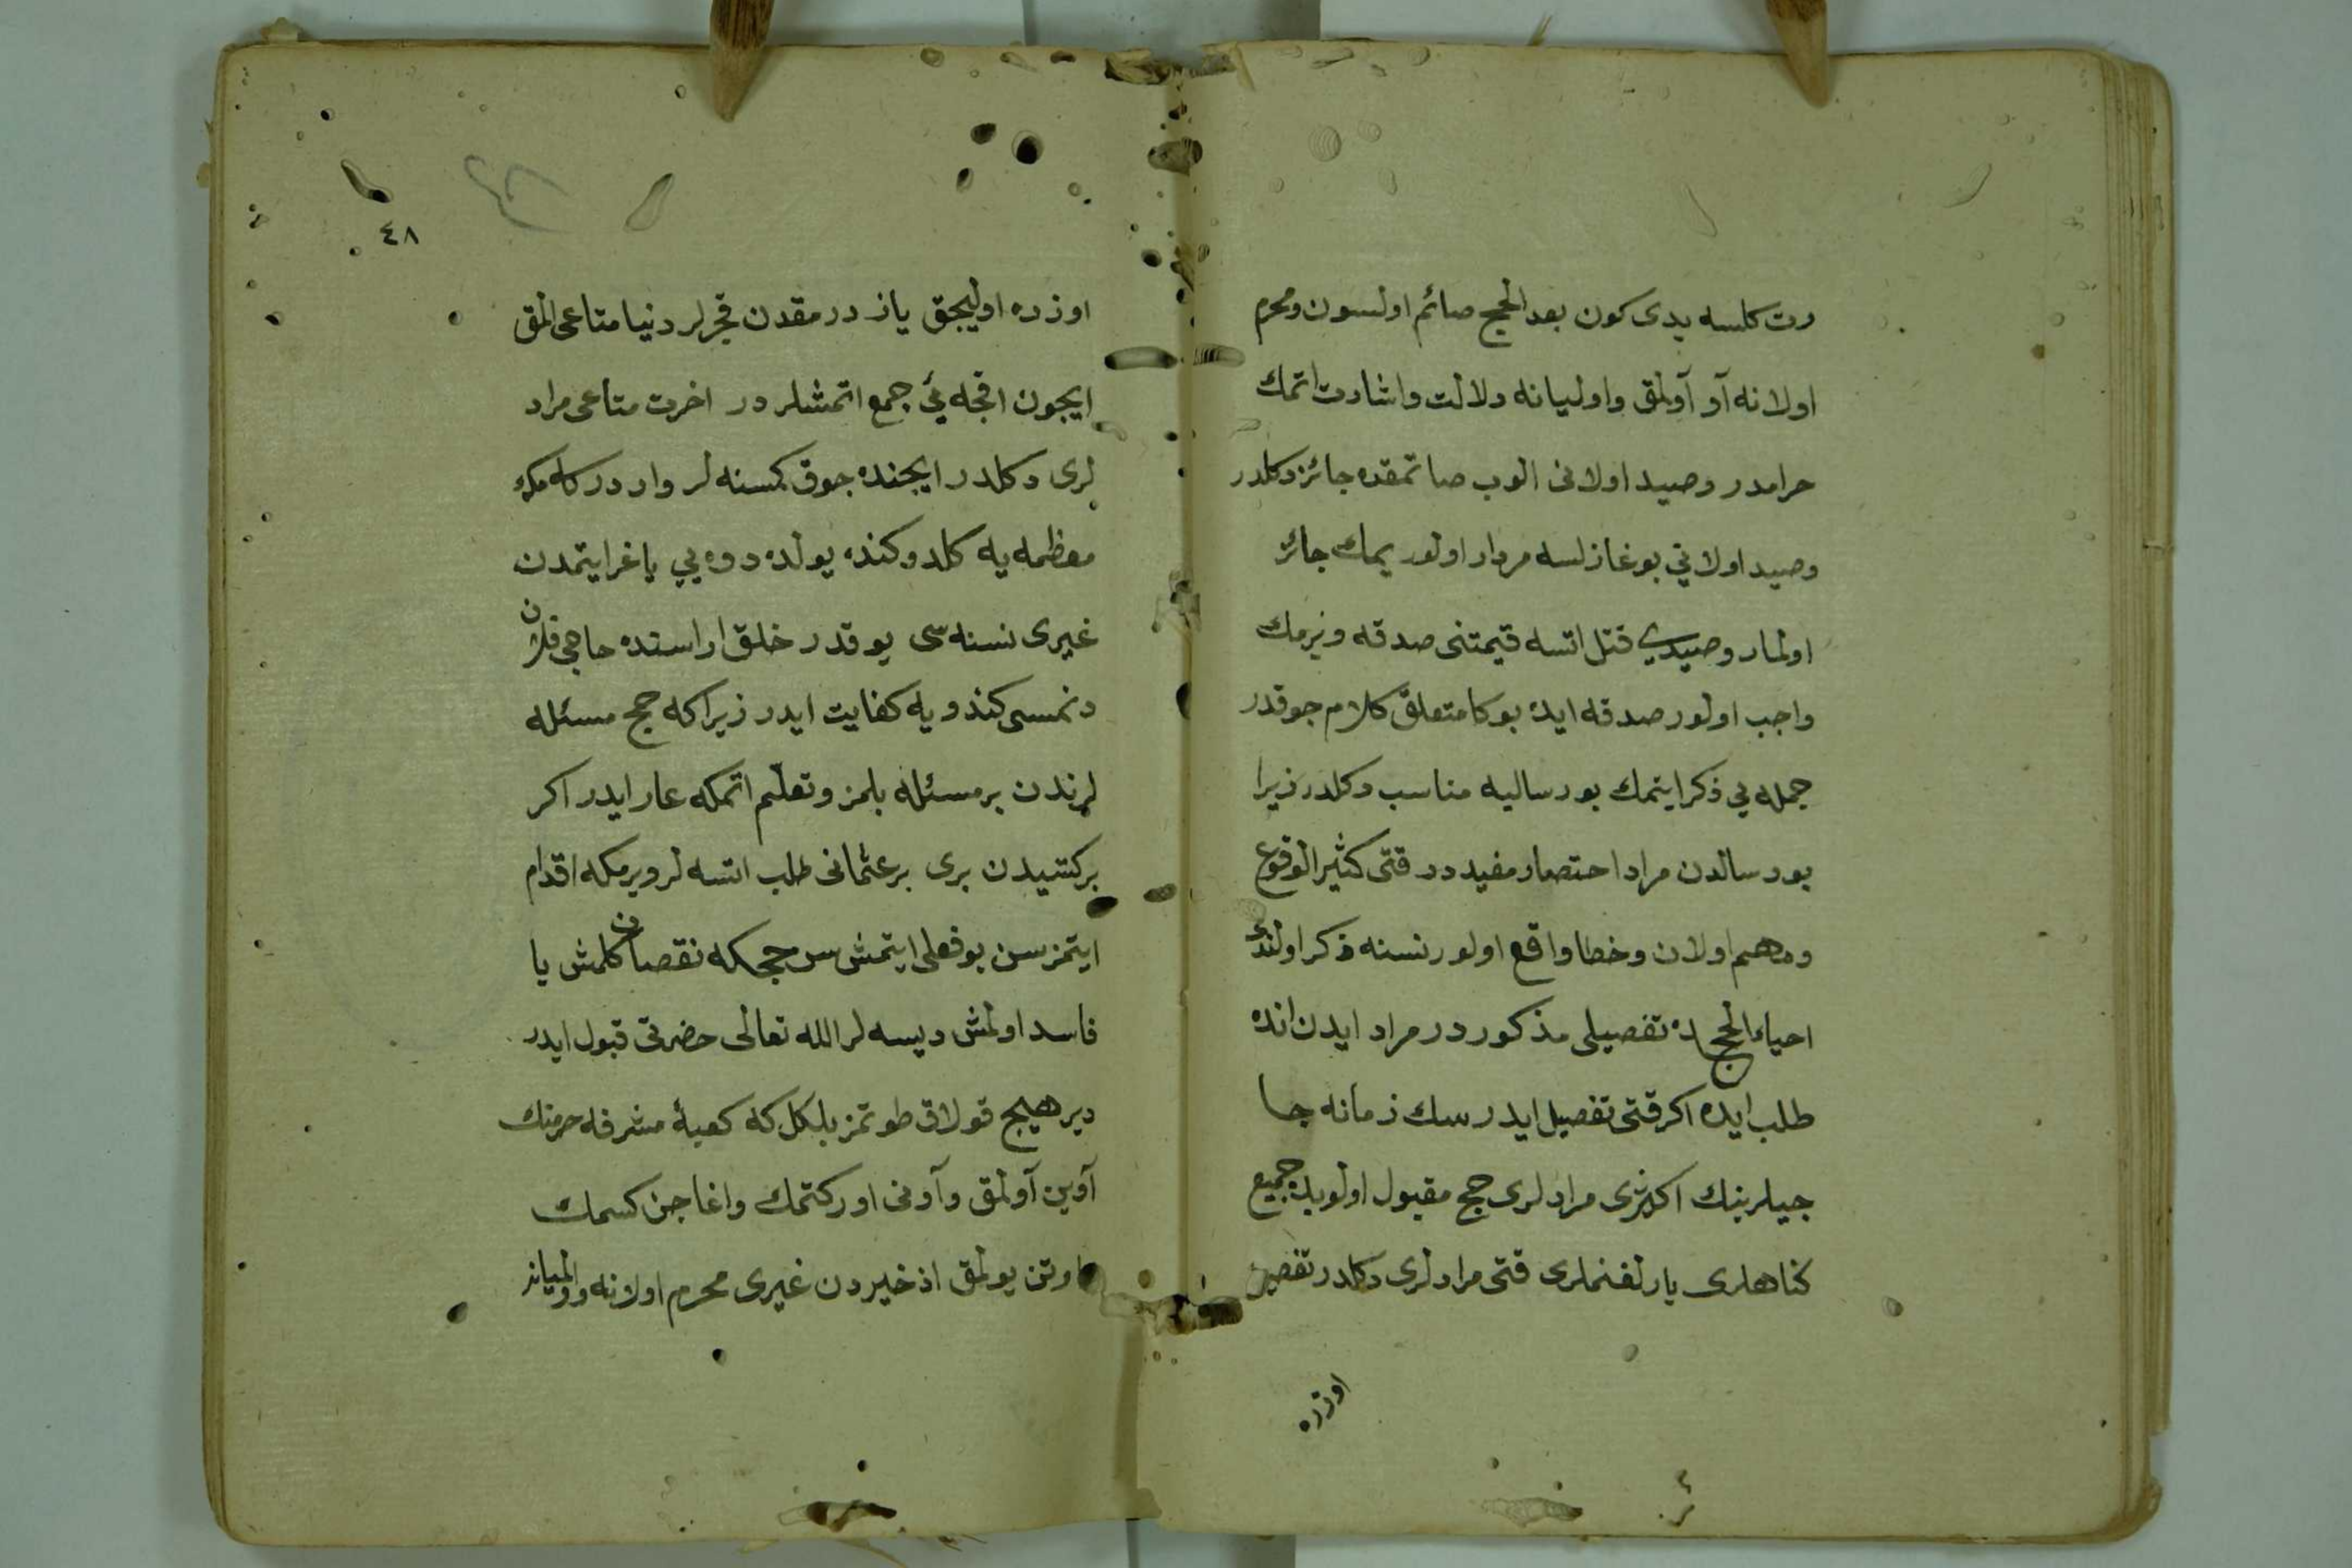 رت كلسه يدى كون بعد الحج صائم اولسون ومحرم
اولانه آو آولمق واوليانه دلالت واشارت اتمك
حرامدر وصيد اولانى الوب صاتمقده جائز دكلدر
وصيد اولاني بوغازلسه مردار اولور يمك جائز
اولمار وصيدي قتل اتسه قيمتنى صدقه ويرمك
واجب اولور صدقه ايده بوكا متعلق كلام جوقدر
جمله يي ذكر ايتمك بو رساليه مناسب دكلدر زيرا
بو رسالدن مراد احتصار مفيد در قتى كثير الوقوع
ومهم اولان وخطا واقع اولور نسنه ذكر اولندى
احياء الحج ده تفصيلى مذكور در مراد ايدن انده
طلب ايده اكر قتى تفصيل ايدرسك زمانه حا
جيلرينك اكثرى مرادلرى حج مقبول اولوب جميع
كناهلرى يارلغنملرى قتى مرادلرى دكلدر تفصيل
اوزره
٤٨
اوزره اوليجق يازدرمقدن قجرلر دنيا متاعى المق
ايجون اقجه ئي جمع اتمشلردر اخرت متاعى مراد
لرى دكلدر ايجنده جوق كمسنه لر واردر كه مكه
معظمه يه كلدوكنده يولده دوه يي ياغر ايتمدن
غيرى نسنه سى يوقدر خلق اراسنده حاجى فلان
دنمسى كندويه كفايت ايدر زيرا كه حج مسئله
لرندن بر مسئله بلمز وتعلم اتمكه عار ايدر اكر
بر كتسيدن برى بر عثمانى طلب اتسه لر ويرمكه اقدام
ايتمزسن بو فعلى ايتمش سن حجكه نقصان كلمش يا
فاسد اولمش ديسه لر الله تعالى حضرتى قبول ايدر
دير هيج قولاق طوتمز بلكل كه كعبۀ مشرفه حرمنك
آوين آولمق وآونى اوركتمك واغاجن كسمك
اوتن يولمق اذخيردن غيرى محرم اولانه واولميانه